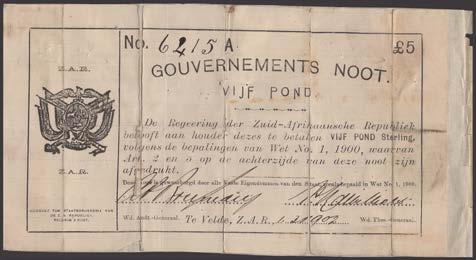 No. 6215 A. £5
Z.A.R.
GOUVERNEMENTS NOOT.
VIJF POND.
De Regeering der Zuid-Afrikaansche Republiek
belooft aan houder dezes te betalen VIJF POND Sterling,
volgens de bepalingen van Wet No. 1, 1900, waarvan
Art. 2 en 5 op de achterzijde van deze noot zijn
afgedrukt.
Z.A.R.
Deze noot is gewaarborgd door alle Vaste Eigendommen van den Staat, bepaald in Wet No. 1, 1900.
Wd. Audt.-Generaal. Te Velde, Z.A.R., 1902 Wd. Thes.-Generaal.
GEDRUKT TER STAATSDRUKKERIJ VAN
DE Z. A. REPUBLIEK,